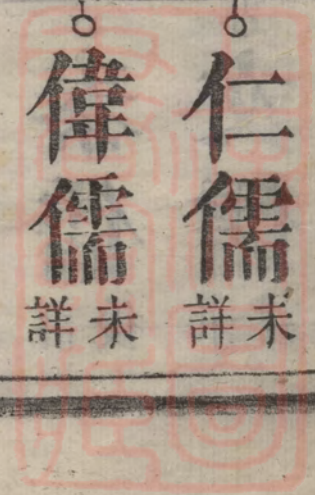 仁儒未詳
偉儒未詳